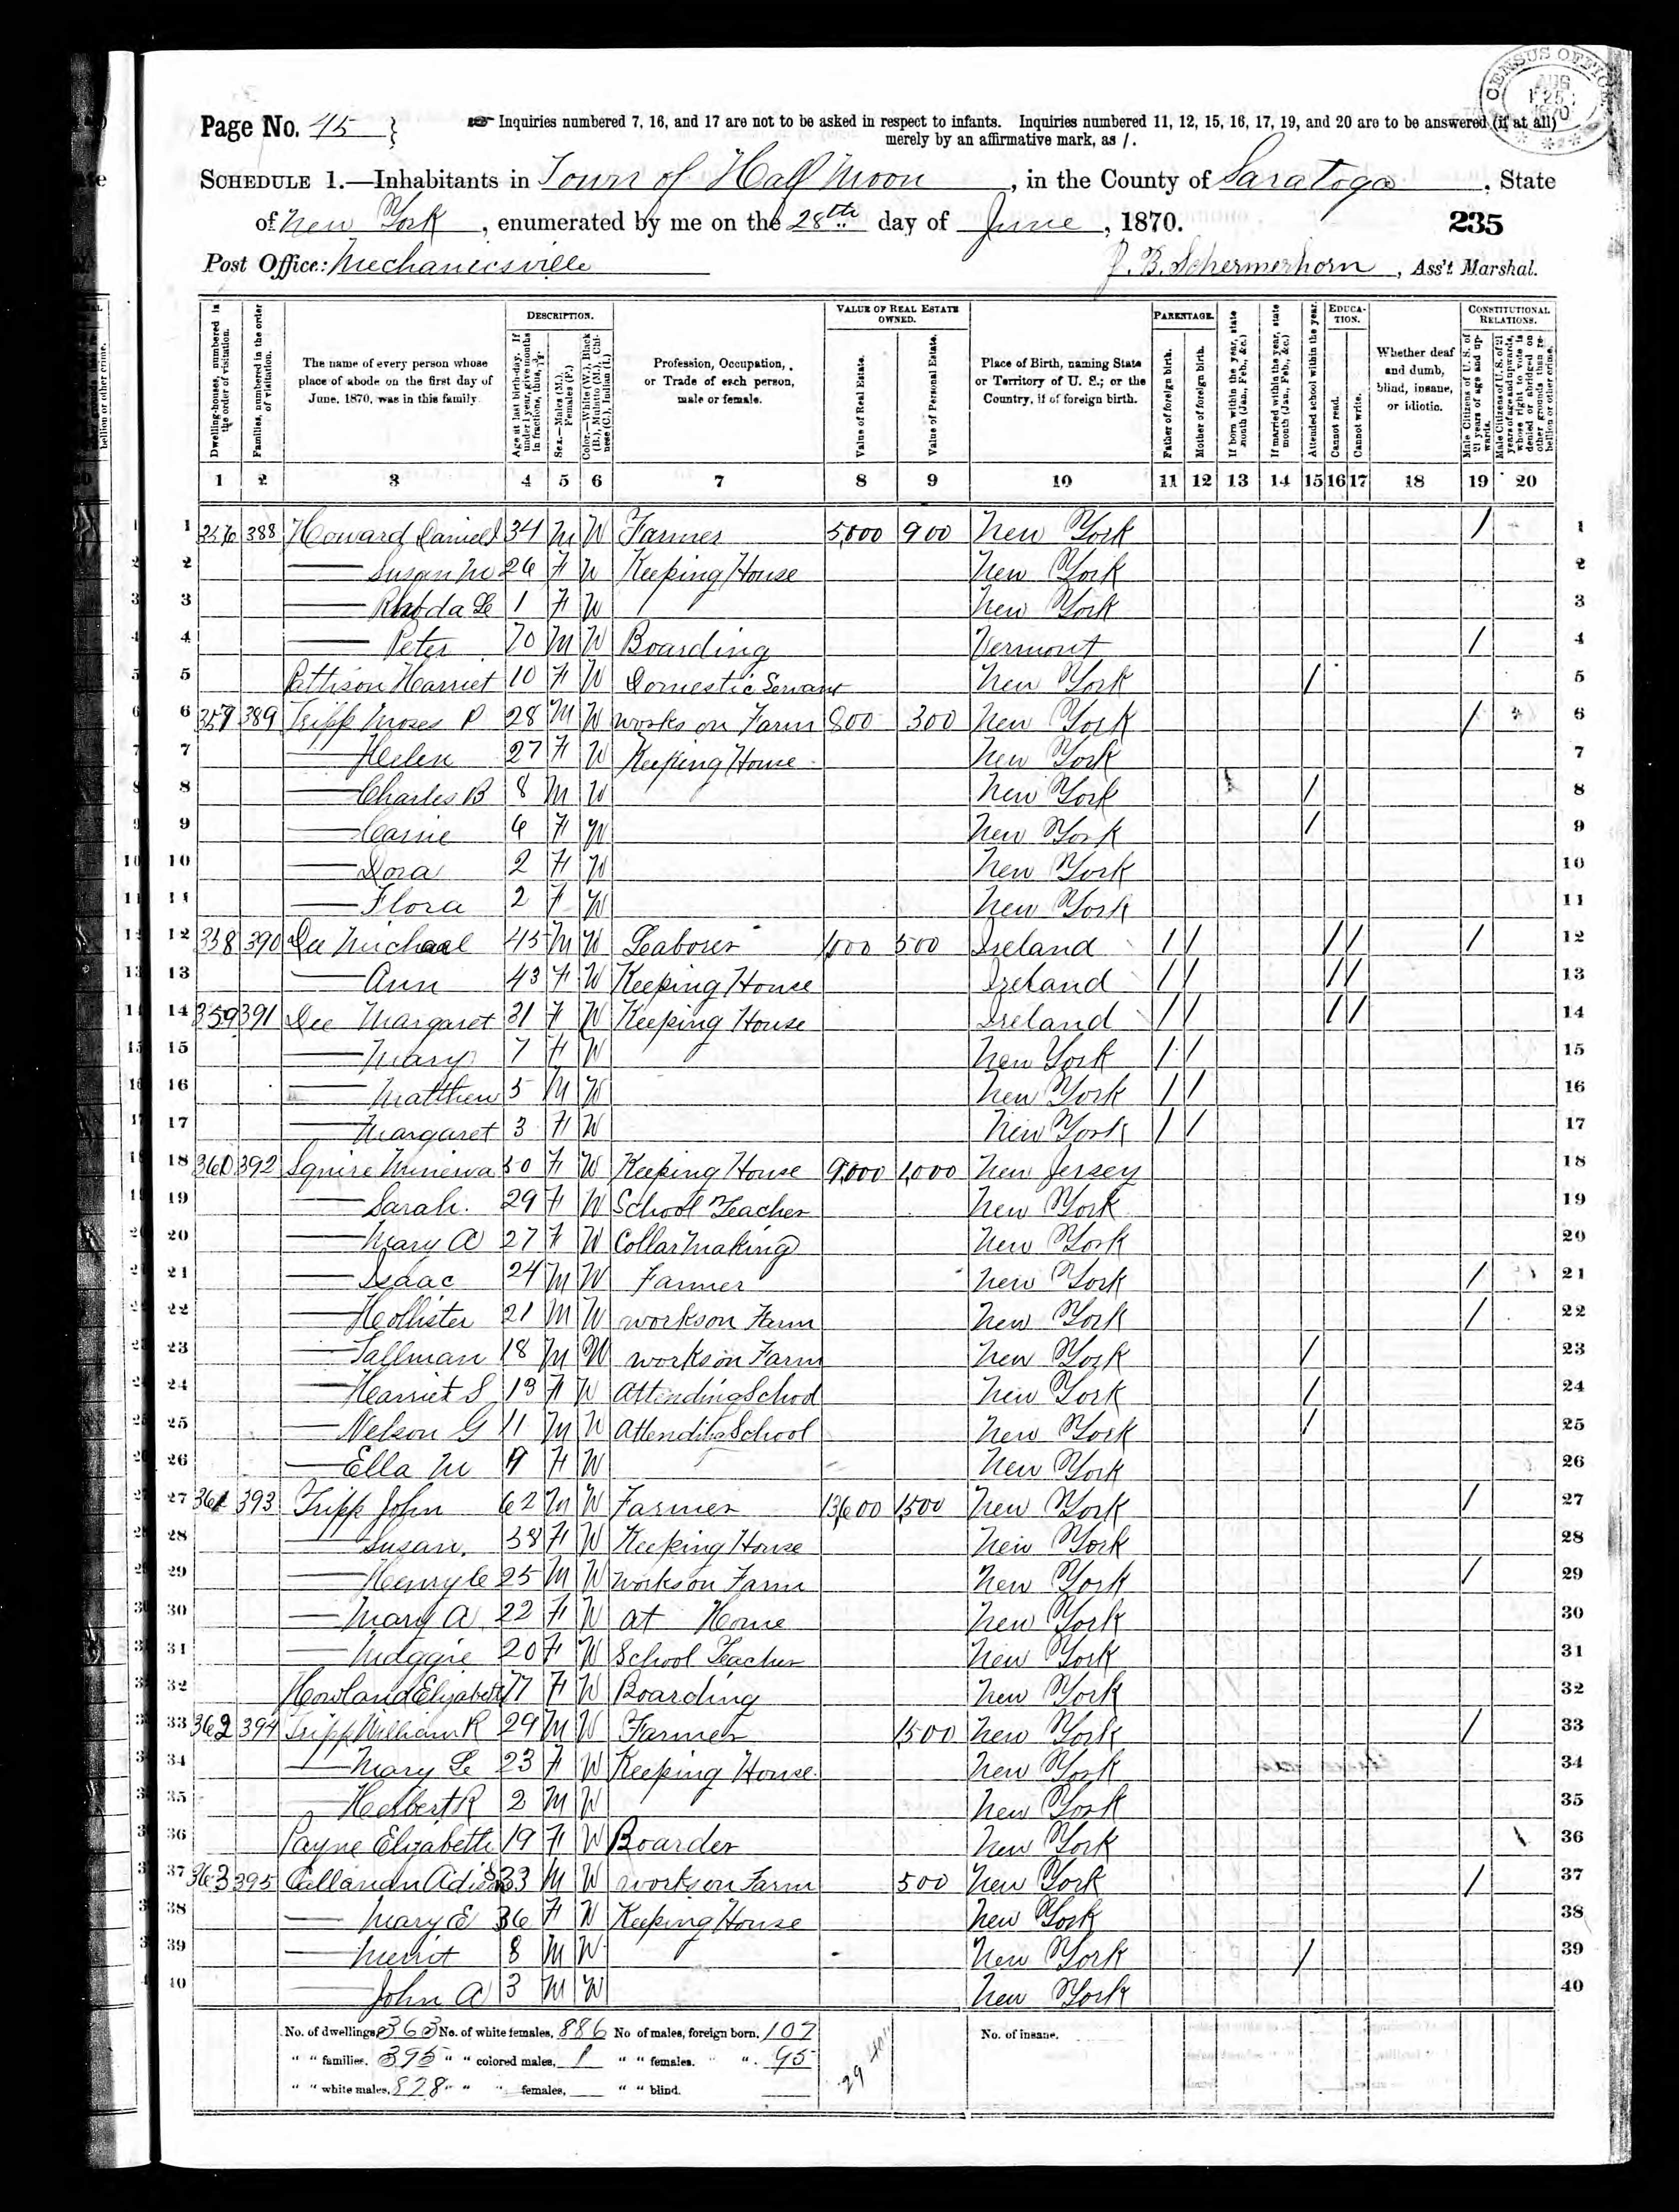 CENSUS OFFICE
AUG
25
1870
Page No. 45
Inquiries numbered 7, 16, and 17 are not to be asked in respect to infants. Inquiries numbered 11, 12, 15, 16, 17, 19, and 20 are to be answered (if at all)
merely by an affirmative mark, as /.
SCHEDULE 1.—Inhabitants in Town of Half Moon, in the County of Saratoga, State
of New York, enumerated by me on the 28th day of June, 1870. 235
Post Office: Mechanicsville J. B. Schermerhorn, Ass't Marshal.
Dwelling-houses, numbered in the order of visitation.
Families, numbered in the order of visitation.
The name of every person whose place of abode on the first day of June, 1870, was in this family.
DESCRIPTION.
Age at last birth-day. If under 1 year, give months in fractions, thus, 3/12.
Sex.—Males (M.), Females (F.)
Color.—White (W.), Black (B.), Mulatto (M.), Chinese (C.), Indian (I.)
Profession, Occupation, or Trade of each person, male or female.
VALUE OF REAL ESTATE OWNED.
Value of Real Estate.
Value of Personal Estate.
Place of Birth, naming State or Territory of U. S.; or the Country, if of foreign birth.
PARENTAGE.
Father of foreign birth.
Mother of foreign birth.
If born within the year, state month (Jan., Feb., &c.)
If married within the year, state month (Jan., Feb., &c.)
Attended school within the year.
EDUCATION.
Cannot read.
Cannot write.
Whether deaf and dumb, blind, insane, or idiotic.
CONSTITUTIONAL RELATIONS.
Male Citizens of U. S. of 21 years of age and upwards.
Male Citizens of U. S. of 21 years of age and upwards, whose right to vote is denied or abridged on other grounds than rebellion or other crime.
1 2 3 4 5 6 7 8 9 10 11 12 13 14 15 16 17 18 19 20
1 356 388 Howard Daniel 34 M W Farmer 5,000 900 New York / 1
2 — Susan M 26 F W Keeping House New York 2
3 — Rhoda 1 F W New York 3
4 — Peter 70 M W Boarding Vermont / 4
5 Pattison Harriet 10 F W Domestic Servant New York / 5
6 357 389 Tripp Moses P 28 M W works on Farm 800 300 New York / 6
7 — Helen 27 F W Keeping House New York 7
8 — Charles B 8 M W New York / 8
9 — Carrie 6 F W New York / 9
10 — Dora 2 F W New York 10
11 — Flora 2 F W New York 11
12 358 390 Dee Michael 45 M W Laborer 1,000 500 Ireland / / / / / 12
13 — Ann 43 F W Keeping House Ireland / / / / 13
14 359 391 Dee Margaret 31 F W Keeping House Ireland / / / / 14
15 — Mary 7 F W New York / / 15
16 — Matthew 5 M W New York / / 16
17 — Margaret 3 F W New York / / 17
18 360 392 Squire Minerva 50 F W Keeping House 9,000 1,000 New Jersey 18
19 — Sarah. 29 F W School Teacher New York 19
20 — Mary A 27 F W Collar Making New York 20
21 — Isaac 24 M W Farmer New York / 21
22 — Hollister 21 M W works on Farm New York / 22
23 — Tallman 18 M W works on Farm New York / 23
24 — Harriet S 13 F W Attending School New York / 24
25 — Nelson G 11 M W Attending School New York / 25
26 — Ella M 9 F W New York 26
27 361 393 Tripp John 62 M W Farmer 13,600 1,500 New York / 27
28 — Susan. 58 F W Keeping House New York 28
29 — Henry C 25 M W Works on Farm New York / 29
30 — Mary A 22 F W at Home New York 30
31 — Maggie 20 F W School Teacher New York 31
32 Howland Elizabeth 77 F W Boarding New York 32
33 362 394 Tripp William R 29 M W Farmer 1,500 New York / 33
34 — Mary 23 F W Keeping House. New York 34
35 — Herbert R 2 M W New York 35
36 Payne Elizabeth 19 F W Boarder New York 36
37 363 395 Callanan Adison 33 M W works on Farm 500 New York / 37
38 — Mary E 36 F W Keeping House New York 38
39 — Merrit 8 M W New York / 39
40 — John A 3 M W New York 40
No. of dwellings, 363 No. of white females, 886 No of males, foreign born, 107 No. of insane,
" " families. 395 " " colored males, 1 " " females. " ". 95
" " white males, 828 " " " females, " " blind.
29